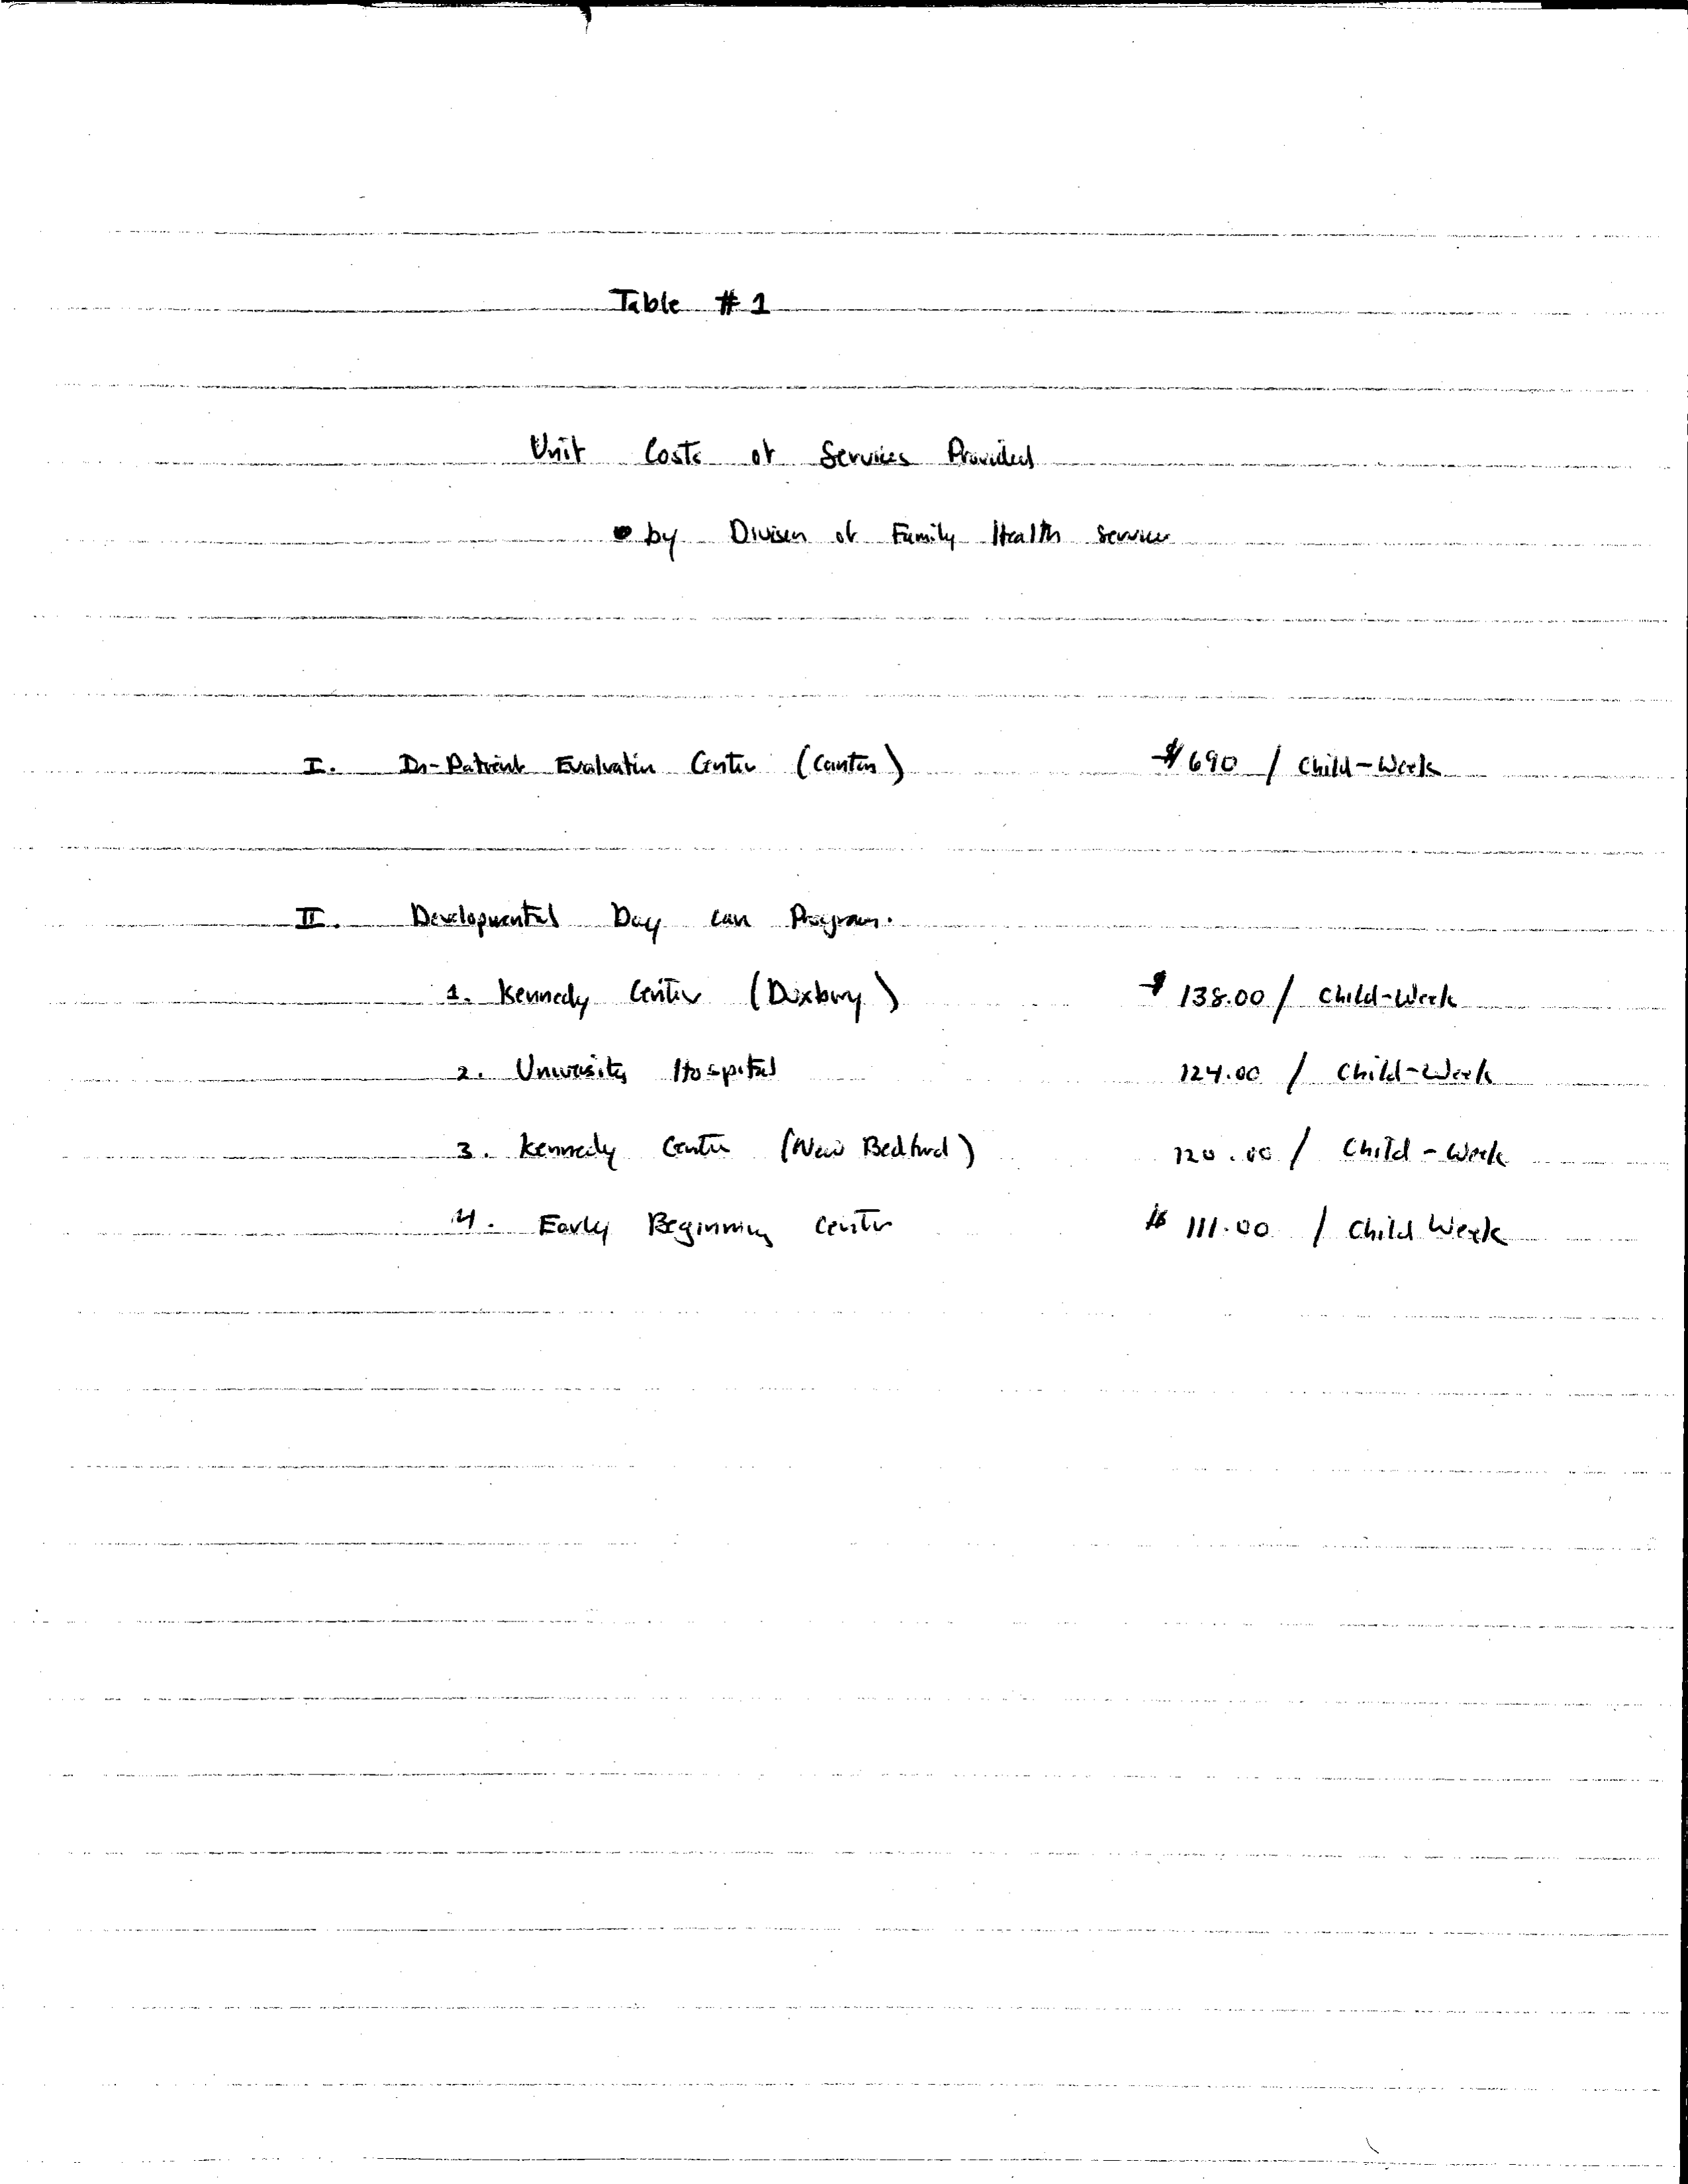 Table # 1
Unit Costs of Services Provided
by Division of Family Health Service
I. In-Patient Evaluation Center (Canton) $690 / Child-Week
II. Developmental Day Care Program.
1. Kennedy Center (Duxbury) $138.00 / Child-Week
2. University Hospital 124.00 / Child-Week
3. Kennedy Center (New Bedford) 120.00 / Child-Week
4. Early Beginning Center $ 111.00 / Child Week